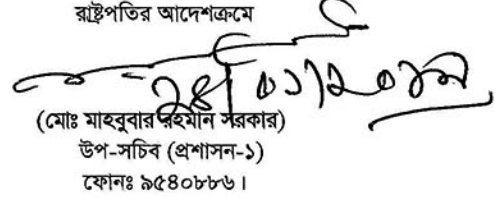 রাষ্ট্রপতির আদেশক্রমে
(মোঃ মাহবুবার রহমান সরকার)
উপ-সচিব (প্রশাসন-১)
ফোনঃ ৯৫৪০৮৮৬।